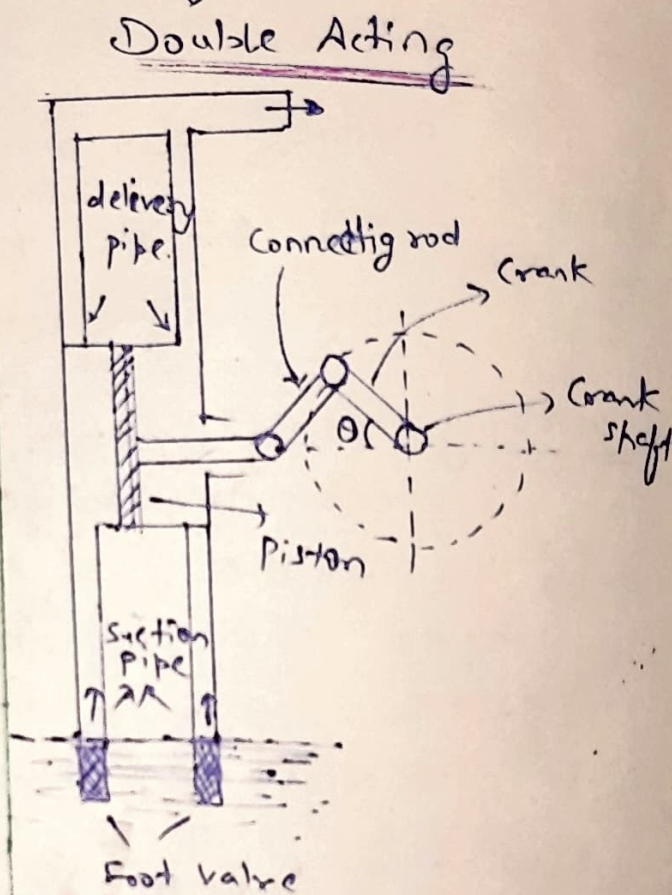 Double Acting
delivery
pipe.
Connettig rod
Crank
Crank
shaft
θ
Piston
Suction
pipe
Foot valve